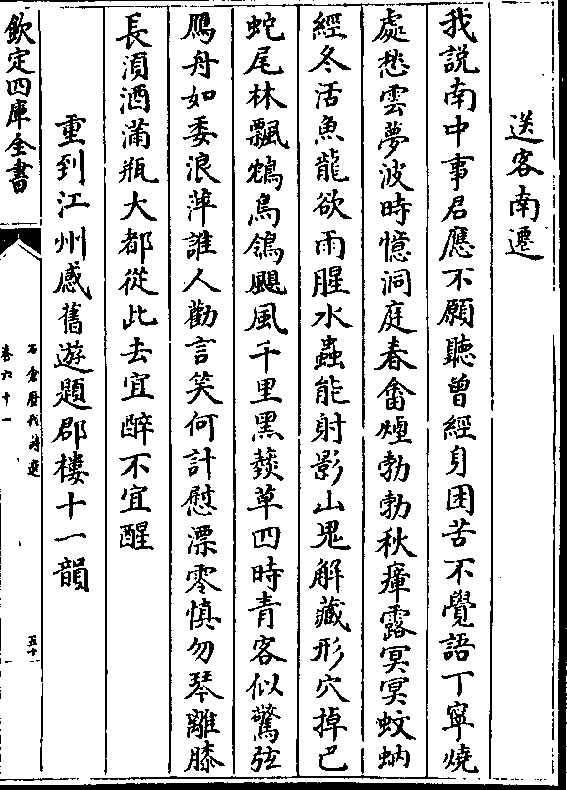 送客南遷
我說南中事君應不願聽曾經身困苦不覺語丁寧燒
處愁雲夢波時憶洞庭春畬煙勃勃秋瘴露冥冥蚊蚋
經冬活魚龍欲雨腥水蟲能射影山鬼解藏形穴掉巴
蛇尾林飄鴆鳥翎颶風千里黑䓤草四時青客似驚弦
鴈舟如委浪萍誰人勸言笑何計慰漂零慎勿琴離膝
長湏酒滿瓶大都從此去宜醉不宜醒
重到江州感舊遊題郡樓十一韻
欽定四庫全書
石倉歷代詩選
卷六十一
五十一